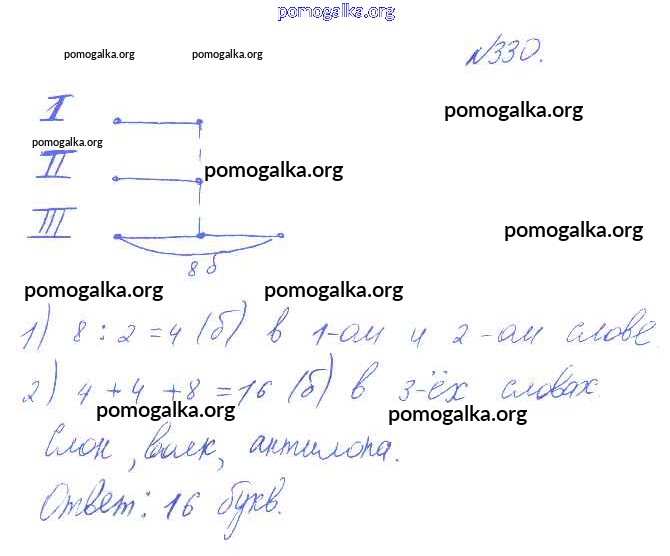 pomogalka.org
pomogalka.org pomogalka.org
№330.
I
pomogalka.org
pomogalka.org
II
pomogalka.org
III
pomogalka.org
8 б
pomogalka.org pomogalka.org
1) 8 : 2 = 4 (б) в 1-ом и 2-ом слове.
2) 4 + 4 + 8 = 16 (б) в 3-ёх словах.
pomogalka.org pomogalka.org
Слон, волк, антилопа.
Ответ: 16 букв.